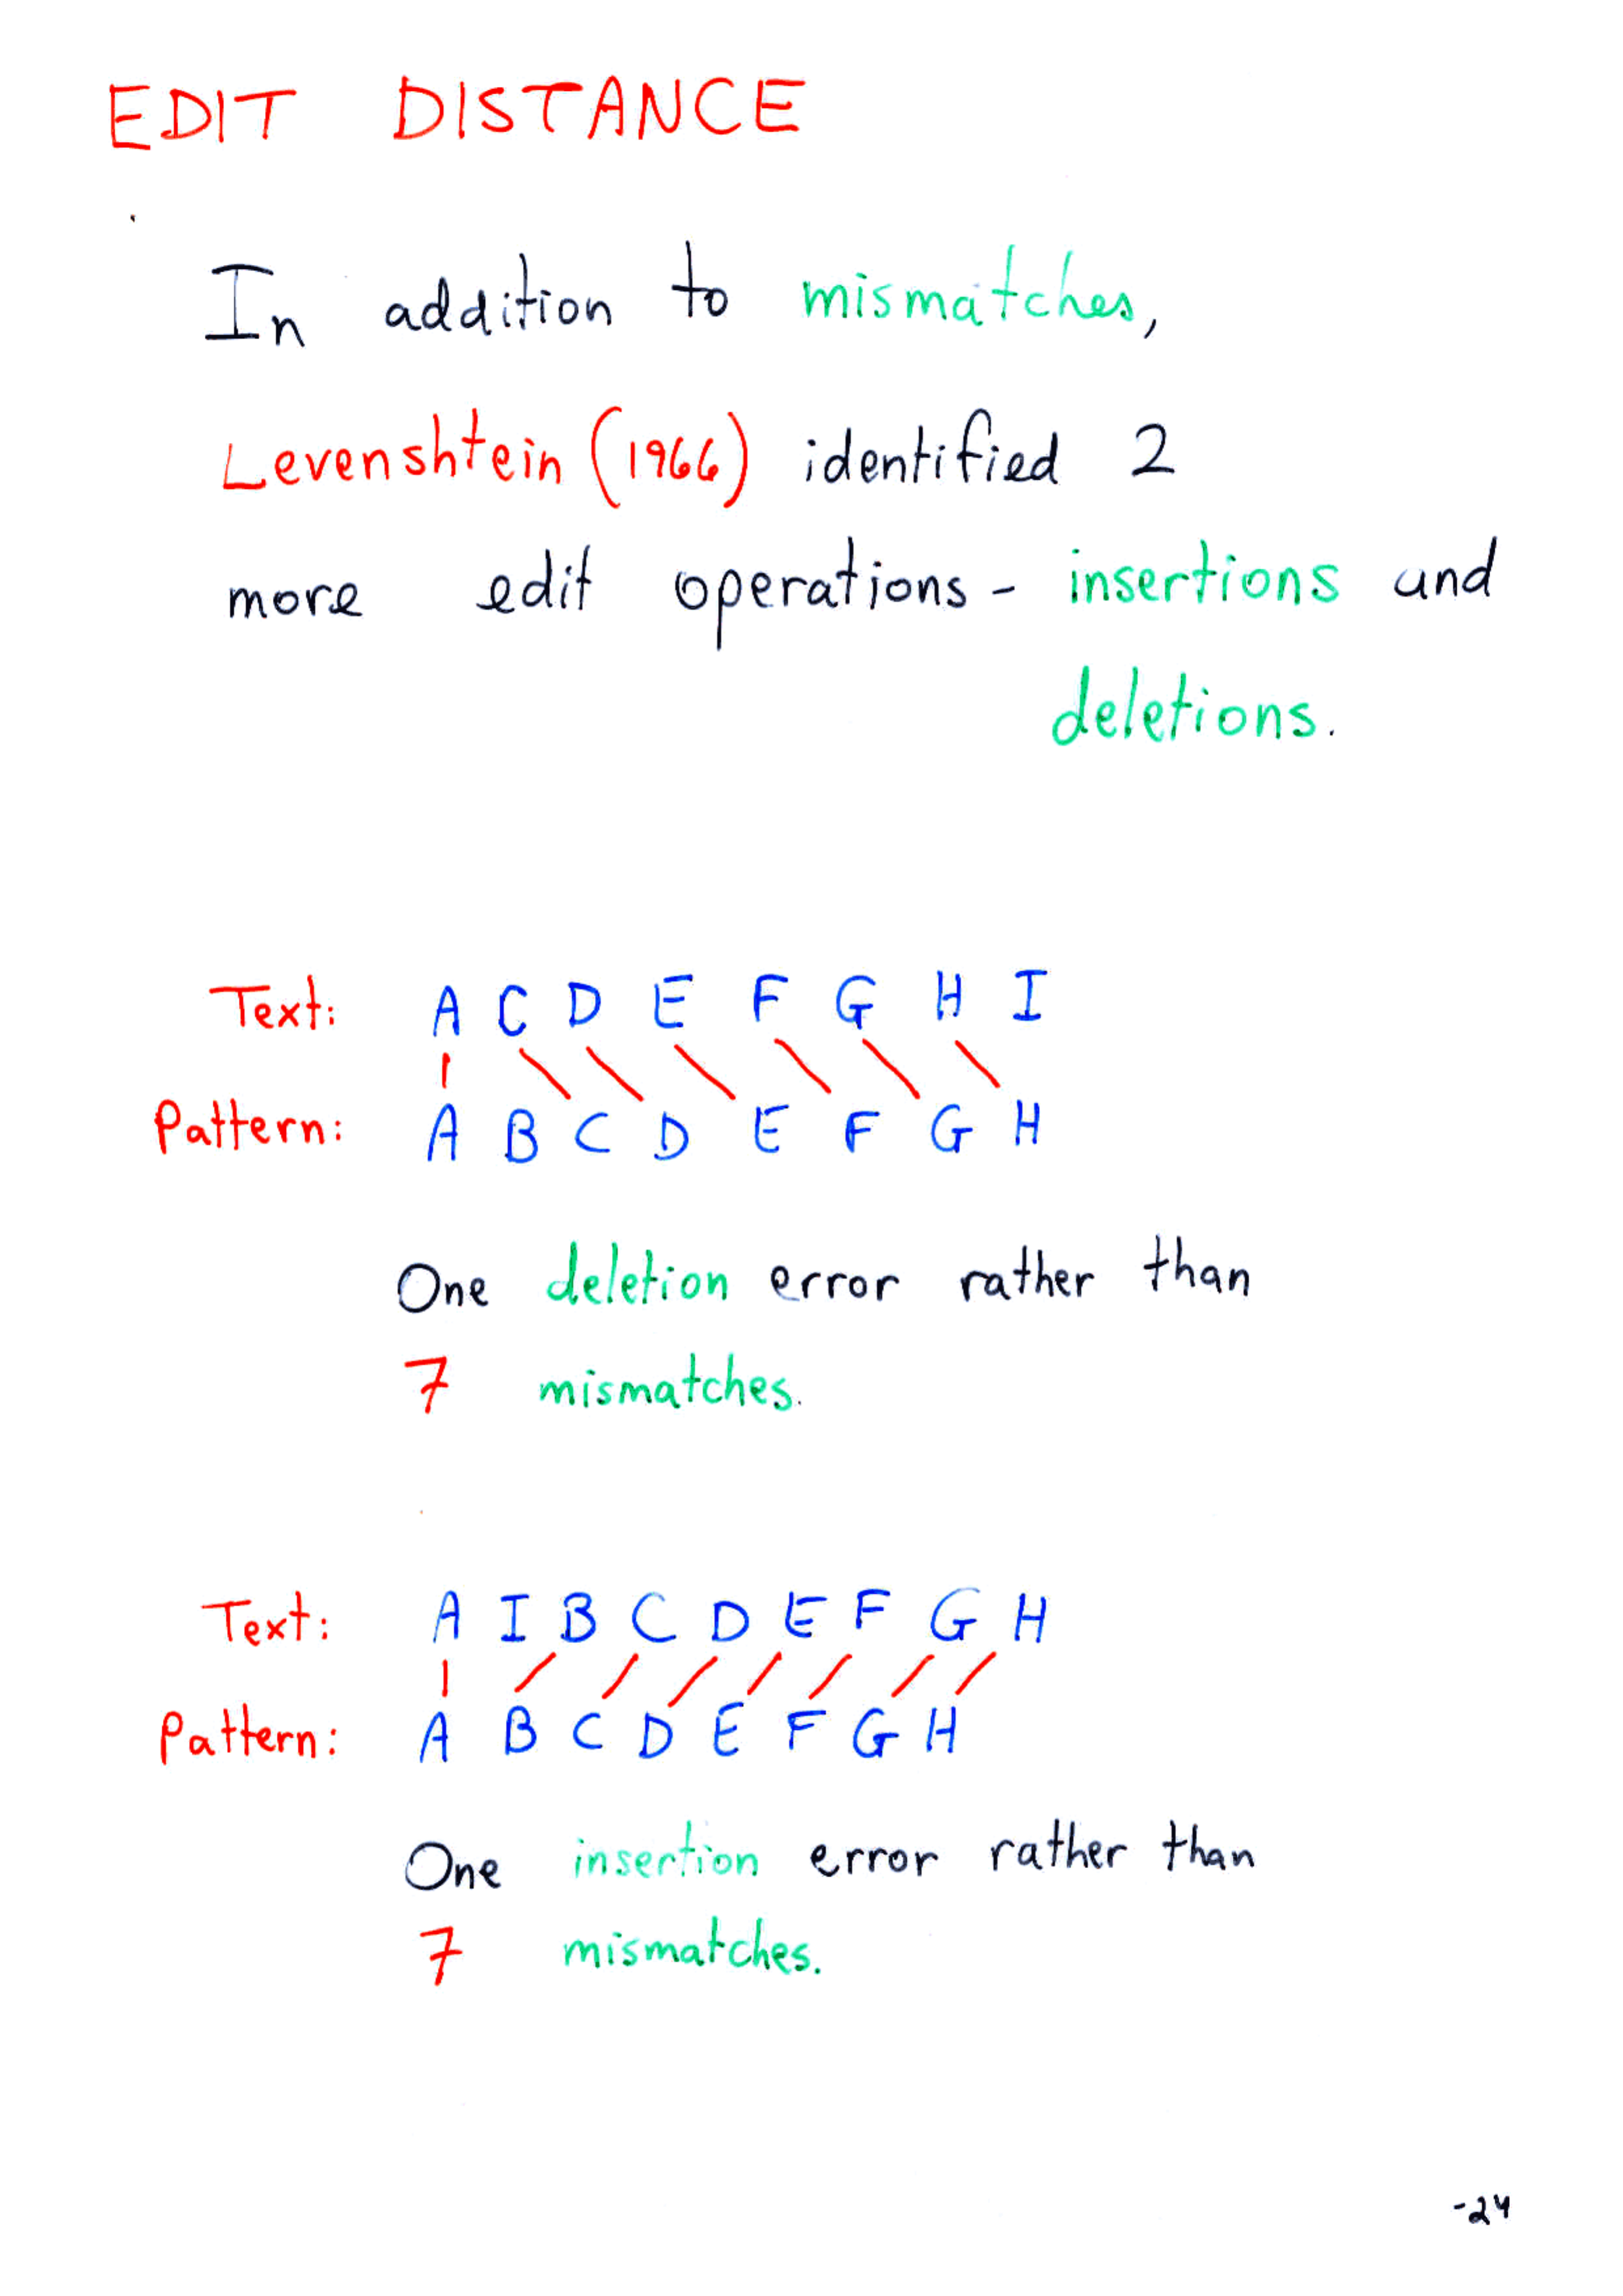 EDIT DISTANCE
In addition to mismatches,
Levenshtein (1966) identified 2
more edit operations - insertions and
deletions.
Text: A C D E F G H I
Pattern: A B C D E F G H
One deletion error rather than
7 mismatches.
Text: A I B C D E F G H
Pattern: A B C D E F G H
One insertion error rather than
7 mismatches.
-24